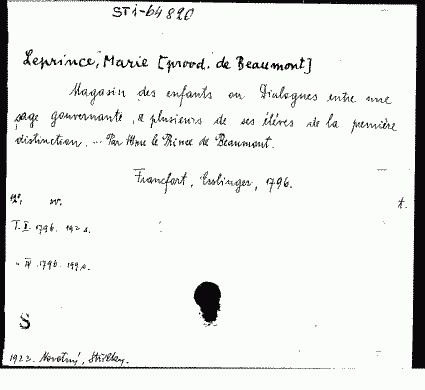 STi-64820
Leprince, Marie [provd. de Beaumont]
Magasin des enfants ou Dialogues entre une
sage gouvernante, a plusieurs de ses élèves de la première
distinction. ... Par Mme le Prince de Beaumont.
Francfort, Esslinger, 1796.
12°, w. t.
T. I. 1796. 192 s.
" IV. 1796. 199 s.
S
1922. Novotný, Střílky.